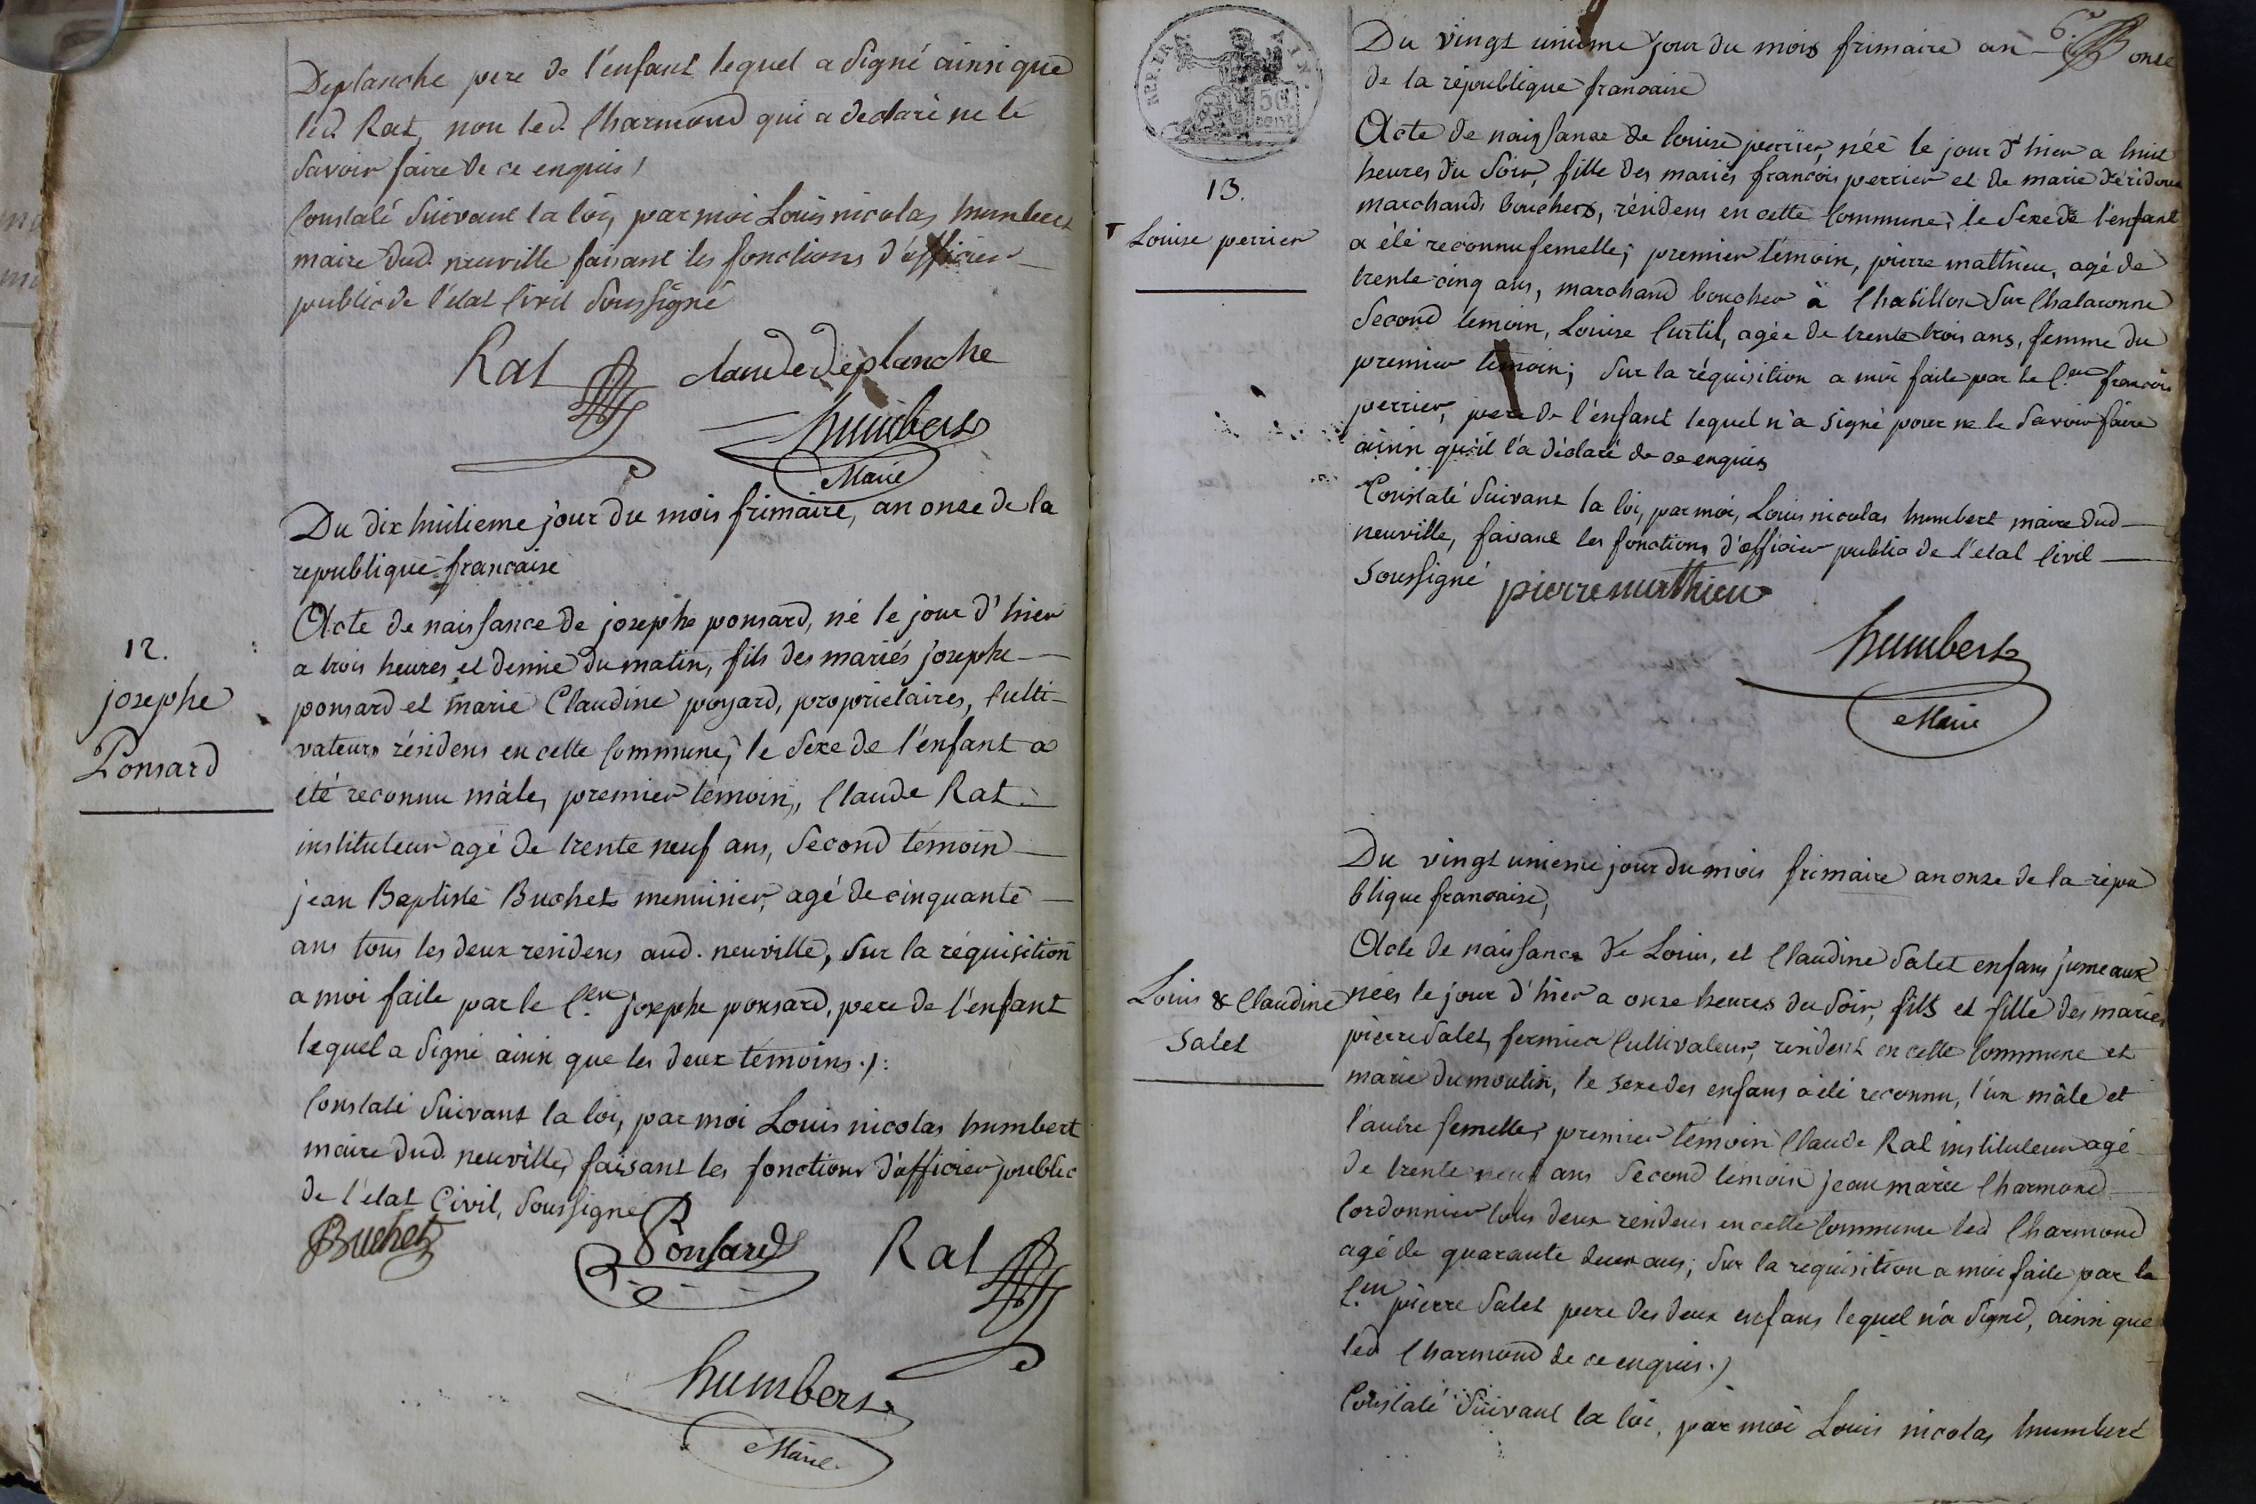 Deplanche pere de l'enfant lequel a signé ainsi que
led. Rat, non led. Charmond qui a declaré ne le
savoir faire de ce enquis /
Constaté suivant la loi, par moi Louis nicolas humbert
maire dud. neuville faisant les fonctions d'officier
public de l'état Civil soussigné
Rat claude deplanche
humbert
Maire
12.
josephe
Ponsard
Du dix huitieme jour du mois frimaire, an onze de la
republique francaise
Acte de naissance de josephe ponsard, né le jour d'hier
a trois heures et demie du matin, fils des mariés josephe
ponsard et marie Claudine poyard, proprietaires, Culti-
vateurs résidens en cette Commune, le sexe de l'enfant a
été reconnu mâle, premier témoin, Claude Rat
instituteur agé de trente neuf ans, second témoin
jean Baptiste Buchet menuisier, agé de cinquante
ans tous les deux residens aud. neuville, sur la réquisition
a moi faite par le C.en josephe ponsard, pere de l'enfant
lequel a signé ainsi que les deux témoins ./:
Constaté suivant la loi, par moi Louis nicolas humbert
maire dud. neuville, faisant les fonctions d'officier public
de l'etat Civil, soussigné
Buchet Ponsard Rat
humbert
Maire
50
cent
13.
Louise perrier
6.e
Du vingt unieme jour du mois frimaire an onze
de la republique francaise
Acte de naissance de louise perrier, née le jour d'hier a huit
heures du soir, fille des mariés francois perrier et de marie
marchands bouchers, résidens en cette Commune, le sexe de l'enfant
a été reconnu femelle; premier témoin, pierre mathieu, agé de
trente cinq ans, marchand boucher à Chatillon sur Chalaronne
second temoin, Louise Curtil, agée de trente trois ans, femme du
premier témoin; sur la réquisition a moi faite par le C.en francois
perrier, pere de l'enfant lequel n'a signé pour ne le savoir faire
ainsi qu'il l'a déclaré de ce enquis
Constaté suivant la loi, par moi, Louis nicolas humbert maire dud
neuville, faisant les fonctions d'officier public de l'etat Civil
soussigné pierre mathieu
humbert
Maire
Louis & Claudine
Salet
Du vingt unieme jour du mois frimaire an onze de la répu
blique francaise,
Acte de naissance de Louis, et Claudine Salet enfans jumeaux
nées le jour d'hier a onze heures du soir, fils et fille des mariés
pierre Salet, fermier Cultivateur, résident en cette Commune et
marie dumoulin, le sexe des enfans a été reconnu, l'un mâle et
l'autre femelle, premier témoin Claude Rat instituteur agé
de trente neuf ans second temoin jean marie Charmond
Cordonnier tous deux résidens en cette Commune led Charmond
agé de quarante deux ans; sur la requisition a moi faite par le
C.en pierre Salet pere des deux enfans lequel n'a signé, ainsi que
led Charmond de ce enquis ./
Constaté suivant la loi, par moi Louis nicolas humbert